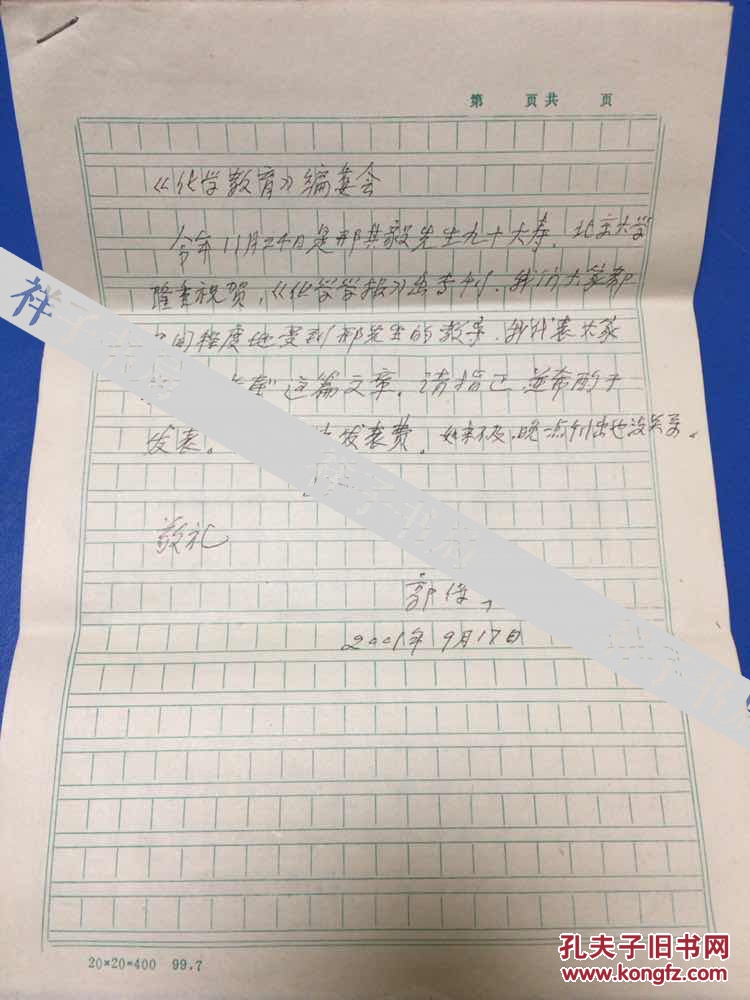 第 页 共 页
《化学教育》编委会
今年11月24日是邢其毅先生九十大寿，北京大学
隆重祝贺，《化学学报》出专刊，我们大家都
同程度地受到邢先生的教导，我代表大家
这篇文章，请指正并希望于
发表。 发表费，如来不及，晚一点刊出也没关系。
敬礼
2001年9月17日
20×20=400 99.7
祥子书店
孔夫子旧书网
www.kongfz.com